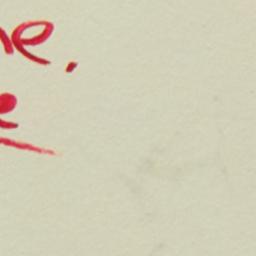 ne.
e